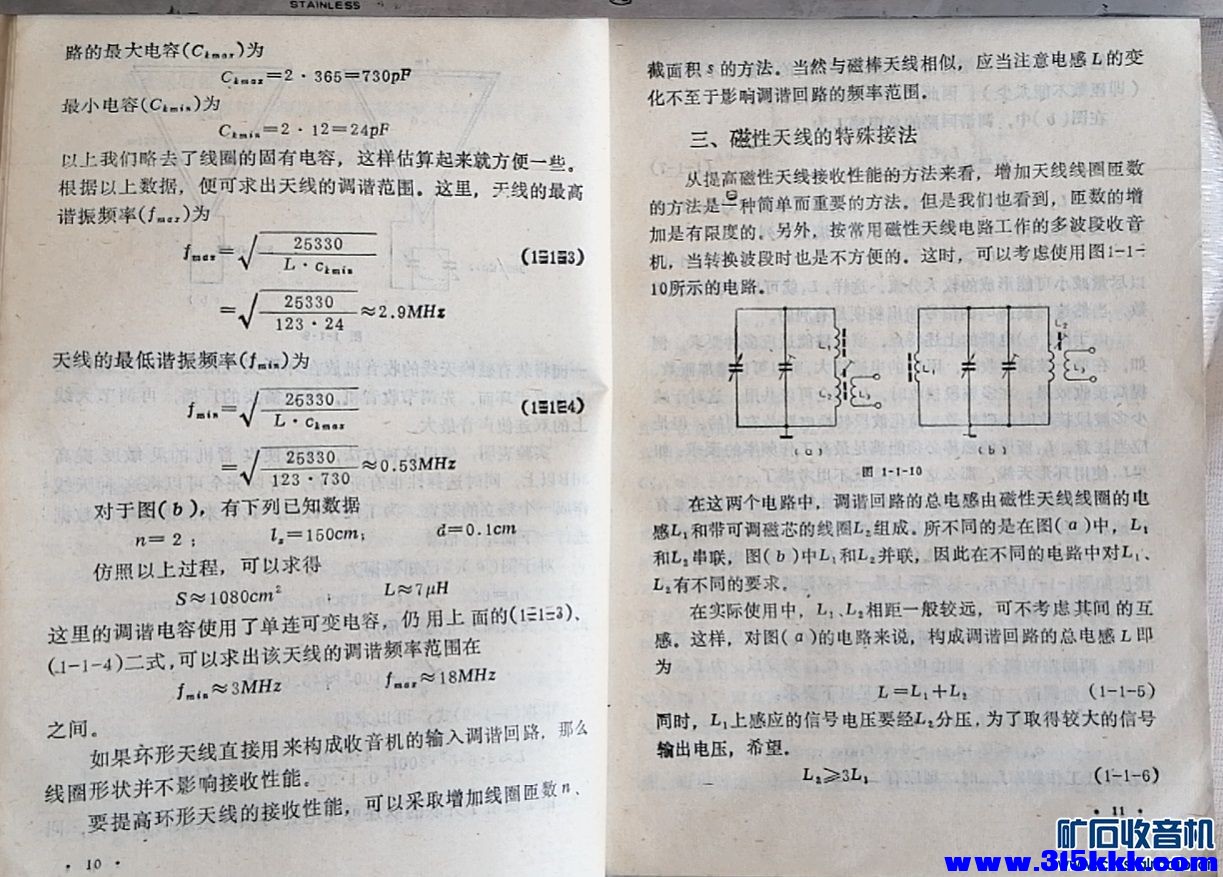 STAINLESS
路的最大电容(Cₖₘₐₓ)为
Cₖₘₐₓ=2·365=730pF
最小电容(Cₖₘᵢₙ)为
Cₖₘᵢₙ=2·12=24pF
以上我们略去了线圈的固有电容，这样估算起来就方便一些。
根据以上数据，便可求出天线的调谐范围。这里，天线的最高
谐振频率(fₘₐₓ)为
fₘₐₓ=√(25330/(L·cₖₘᵢₙ)) (1-1-3)
=√(25330/(123·24))≈2.9MHz
天线的最低谐振频率(fₘᵢₙ)为
fₘᵢₙ=√(25330/(L·cₖₘₐₓ)) (1-1-4)
=√(25330/(123·730))≈0.53MHz
对于图(b)，有下列已知数据
n=2； lₛ=150cm； d=0.1cm
仿照以上过程，可以求得
S≈1080cm² L≈7μH
这里的调谐电容使用了单连可变电容，仍用上面的(1-1-3)、
(1-1-4)二式，可以求出该天线的调谐频率范围在
fₘᵢₙ≈3MHz fₘₐₓ≈18MHz
之间。
如果环形天线直接用来构成收音机的输入调谐回路，那么
线圈形状并不影响接收性能。
要提高环形天线的接收性能，可以采取增加线圈匝数n、
·10·
截面积s的方法。当然与磁棒天线相似，应当注意电感L的变
化不至于影响调谐回路的频率范围。
三、磁性天线的特殊接法
从提高磁性天线接收性能的方法来看，增加天线线圈匝数
的方法是一种简单而重要的方法。但是我们也看到，匝数的增
加是有限度的。另外，按常用磁性天线电路工作的多波段收音
机，当转换波段时也是不方便的。这时，可以考虑使用图1-1-
10所示的电路。
L₁
L₂
L₃
L₁
L₂
L₃
(a)
(b)
图 1-1-10
在这两个电路中，调谐回路的总电感由磁性天线线圈的电
感L₁和带可调磁芯的线圈L₂组成。所不同的是在图(a)中，L₁
和L₂串联，图(b)中L₁和L₂并联，因此在不同的电路中对L₁、
L₂有不同的要求。
在实际使用中，L₁、L₂相距一般较远，可不考虑其间的互
感。这样，对图(a)的电路来说，构成调谐回路的总电感L即
为
L=L₁+L₂ (1-1-5)
同时，L₁上感应的信号电压要经L₂分压，为了取得较大的信号
输出电压，希望。
L₂≥3L₁ (1-1-6)
·11·
矿石收音机
www.3f5kkk.com